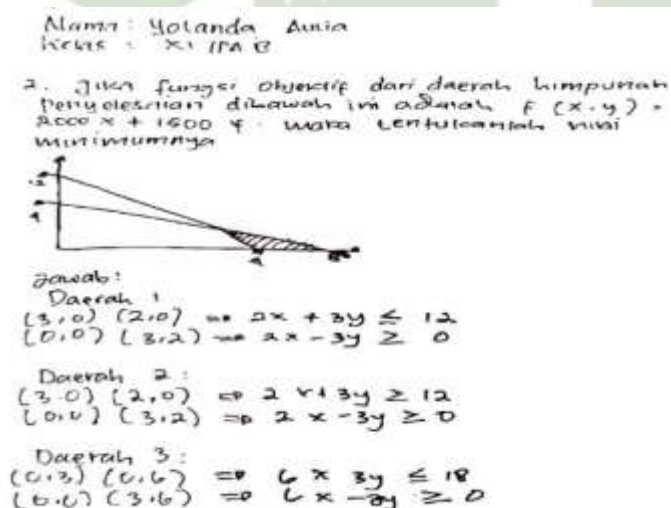 Nama : Yolanda Aulia
Kelas : XI IPA B
2. Jika fungsi objektif dari daerah himpunan
penyelesaian dibawah ini adalah F (x.y) =
2000 x + 1500 y. maka tentukanlah nilai
minimumnya
Jawab :
Daerah 1
(3,0) (2,0) => 2x + 3y ≤ 12
(0,0) (3,2) => 2x - 3y ≥ 0
Daerah 2 :
(3.0) (2,0) => 2 x + 3y ≥ 12
(0,0) (3,2) => 2 x - 3y ≥ 0
Daerah 3 :
(0,3) (0,6) => 6 x 3y ≤ 18
(0,0) (3,6) => 6 x - 3y ≥ 0